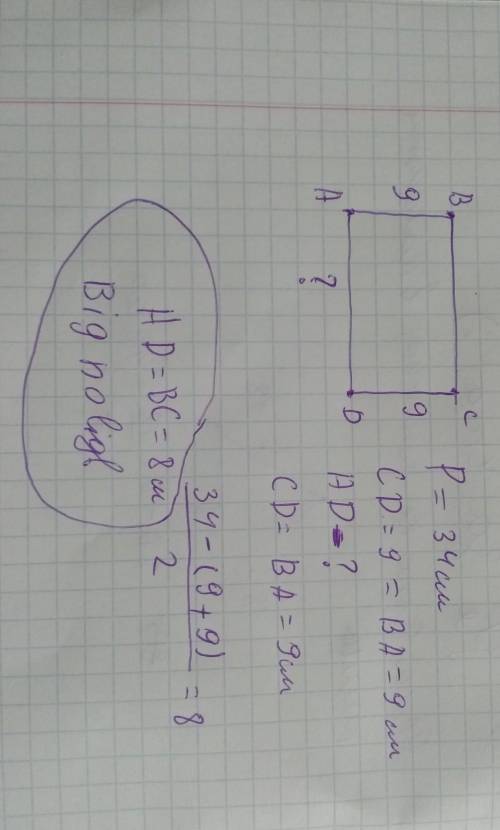 B
C
9
9
A
?
D
P = 34 см
CD = 9 = BA = 9 см
AD - ?
CD = BA = 9 см
34 - (9 + 9)
2
= 8
AD = BC = 8 м